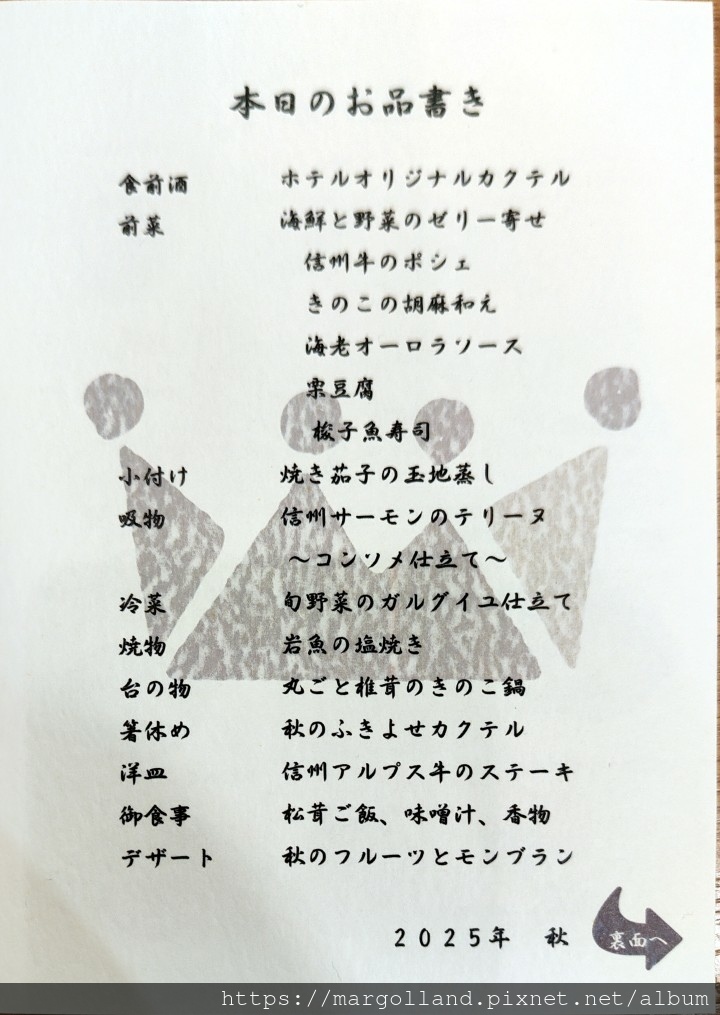 本日のお品書き
食前酒 ホテルオリジナルカクテル
前菜 海鮮と野菜のゼリー寄せ
信州牛のポシェ
きのこの胡麻和え
海老オーロラソース
栗豆腐
梭子魚寿司
小付け 焼き茄子の玉地蒸し
吸物 信州サーモンのテリーヌ
～コンソメ仕立て～
冷菜 旬野菜のガルグイユ仕立て
焼物 岩魚の塩焼き
台の物 丸ごと椎茸のきのこ鍋
箸休め 秋のふきよせカクテル
洋皿 信州アルプス牛のステーキ
御食事 松茸ご飯、味噌汁、香物
デザート 秋のフルーツとモンブラン
2025年 秋
裏面へ
https://margolland.pixnet.net/album